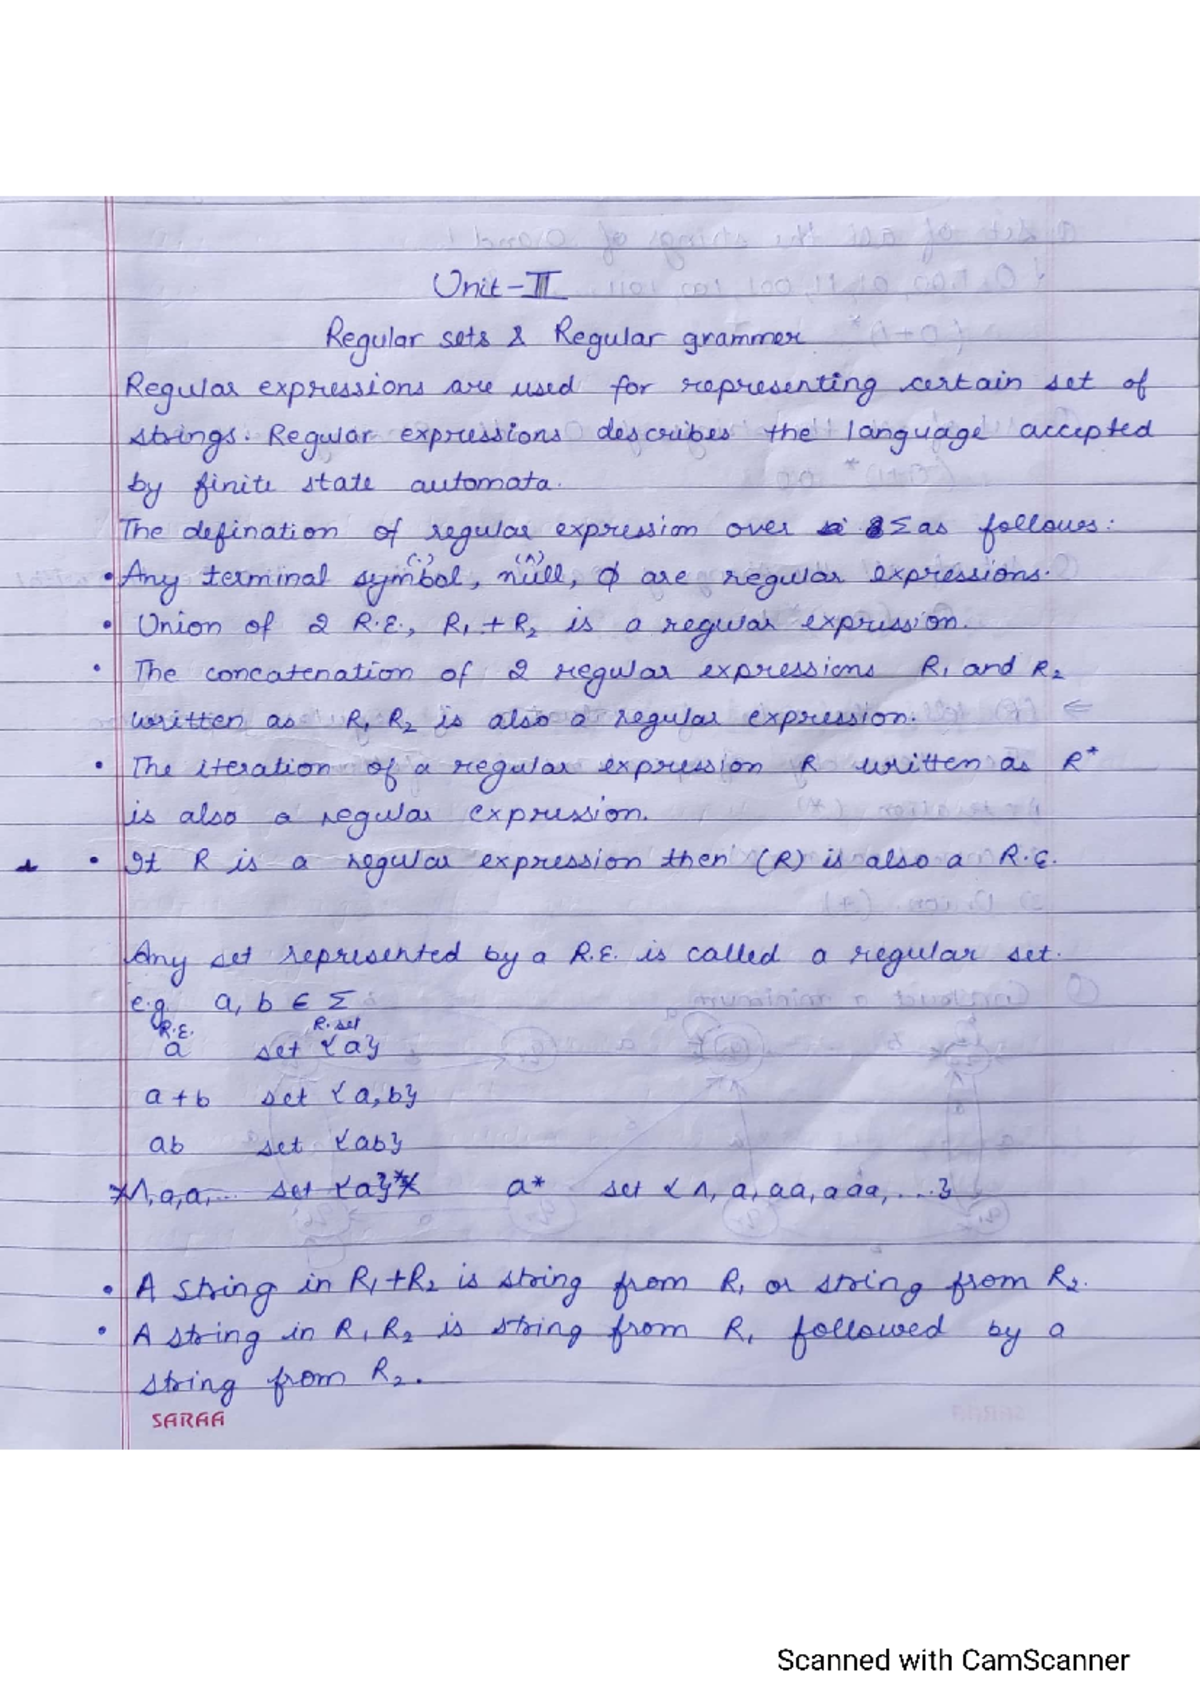 Unit-II
Regular sets & Regular grammer
Regular expressions are used for representing certain set of
strings. Regular expressions describes the language accepted
by finite state automata.
The defination of regular expression over Σ as follows:
(.) (^)
• Any terminal symbol, null, φ are regular expressions.
• Union of 2 R.E., R₁ + R₂ is a regular expression.
• The concatenation of 2 regular expressions R₁ and R₂
written as R₁ R₂ is also a regular expression.
• The iteration of a regular expression R written as R*
is also a regular expression.
• If R is a regular expression then (R) is also a R.E.
Any set represented by a R.E. is called a regular set.
e.g. a, b ∈ Σ
R.E. R. set
a set {a}
a + b set {a, b}
ab set {ab}
Λ, a, a, ... set {a}* a* set {Λ, a, aa, aaa, ....}
• A string in R₁+R₂ is string from R₁ or string from R₂.
• A string in R₁ R₂ is string from R₁ followed by a
string from R₂.
SARAA
Scanned with CamScanner